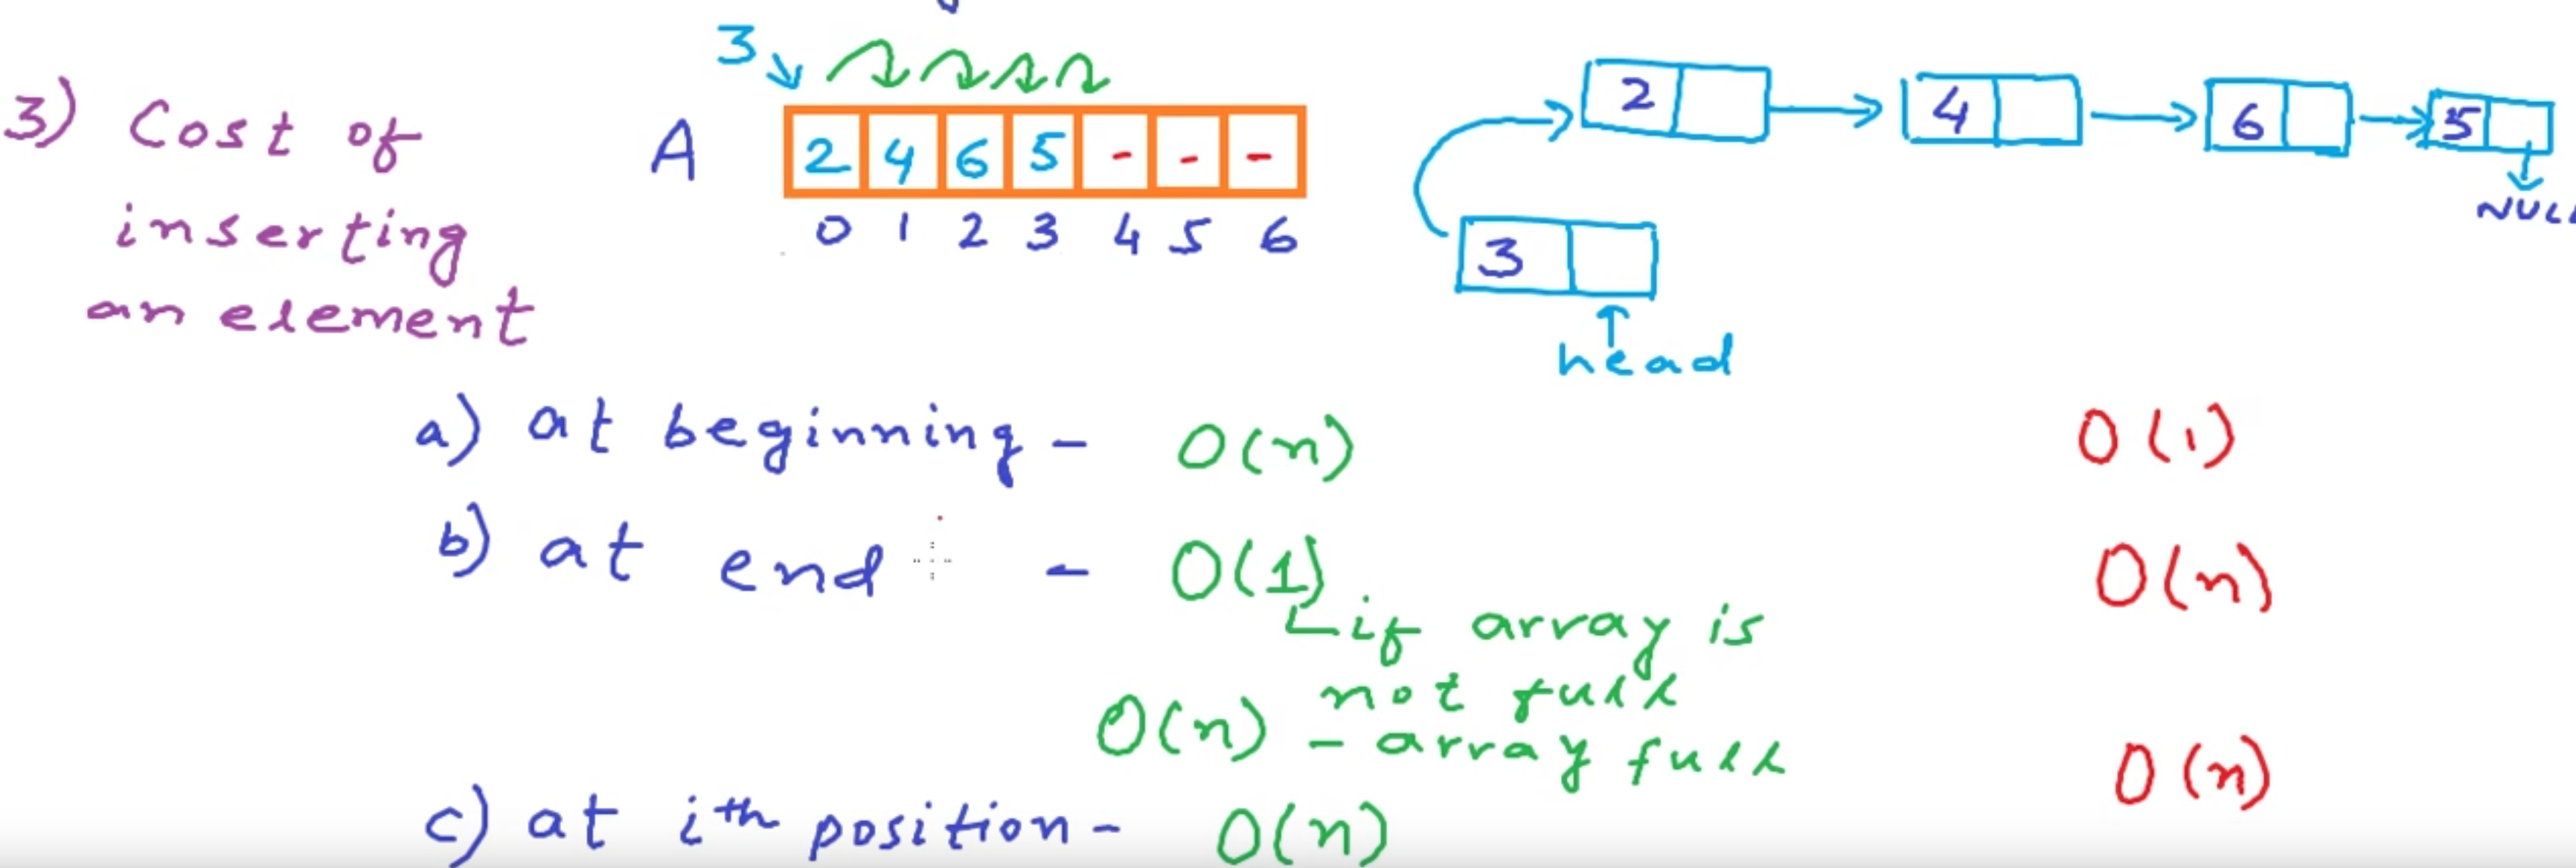 3
3) Cost of
inserting
an element
A
2 4 6 5 - - -
0 1 2 3 4 5 6
2
4
6
5
NULL
3
head
a) at beginning - O(n)
O(1)
b) at end - O(1)
O(n)
if array is
not full
O(n) - array full
c) at ith position - O(n)
O(n)